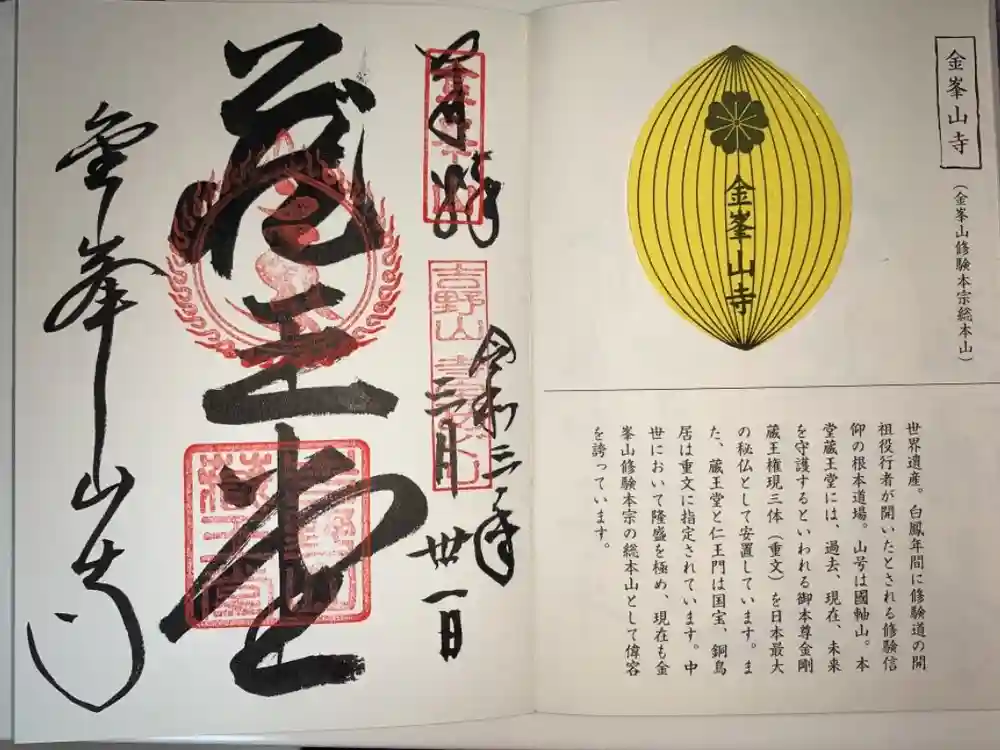 金峯山寺
（金峯山修験本宗総本山）
金峯山寺
世界遺産。白鳳年間に修験道の開
祖役行者が開いたとされる修験信
仰の根本道場。山号は國軸山。本
堂蔵王堂には、過去、現在、未来
を守護するといわれる御本尊金剛
蔵王権現三体（重文）を日本最大
の秘仏として安置しています。ま
た、蔵王堂と仁王門は国宝、銅鳥
居は重文に指定されています。中
世において隆盛を極め、現在も金
峯山修験本宗の総本山として偉容
を誇っています。
令和三年
三月
卅一日
吉野山
蔵王堂
金峯山寺